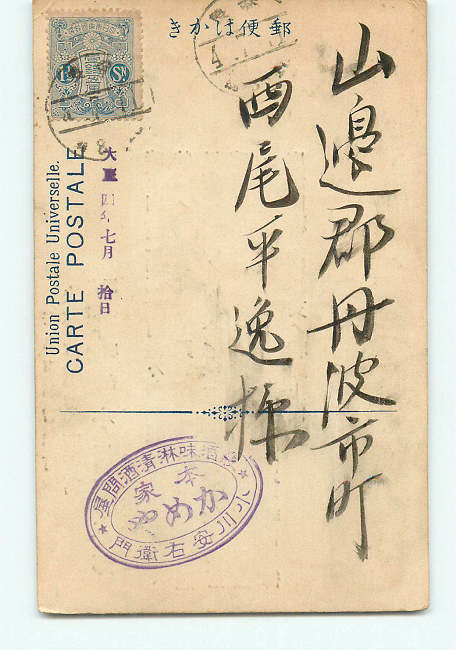 郵便はかき
山邊郡丹波市町
西尾平逸様
大正四年七月拾日
Union Postale Universelle.
CARTE POSTALE
1½ Sn.
酒味淋清酒問屋
本家
かめや
小川安右衛門